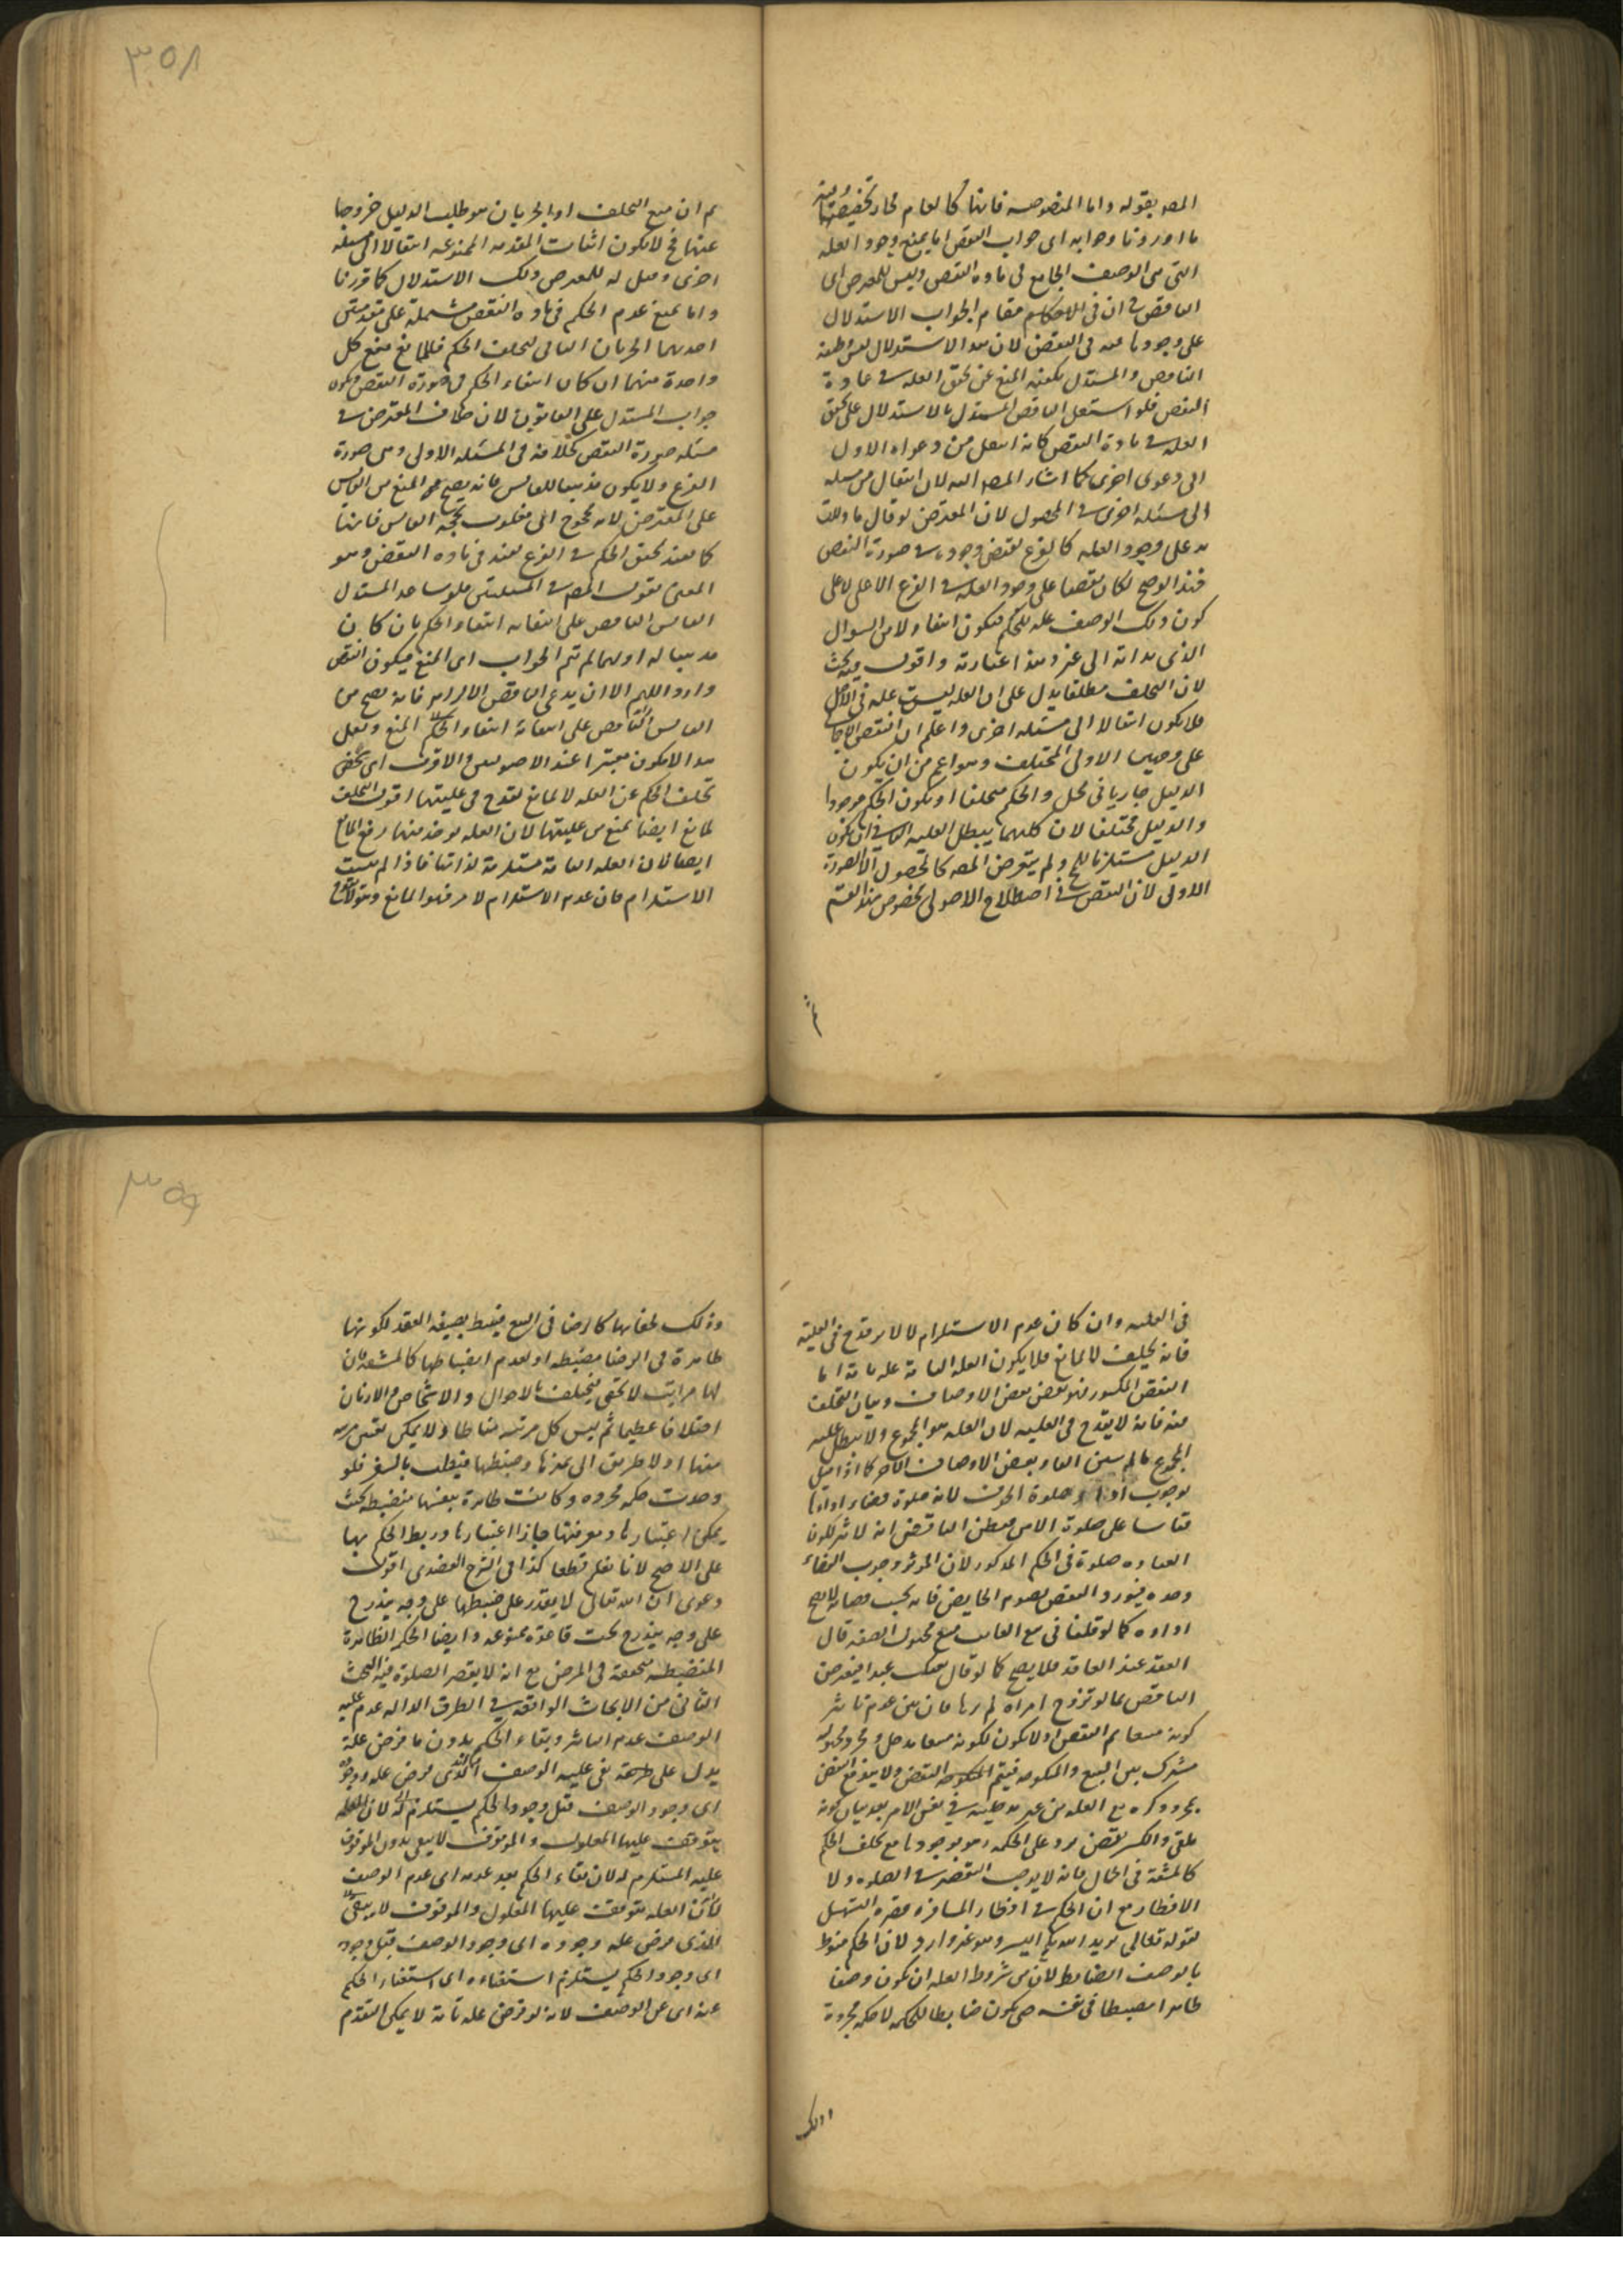 ٣٥٨
المصه بقوله واما المنصوصه فانها كالعام لجاز تخصيصها
ما اوردنا وجوابه اى جواب النقض اما يمنع وجود العله
التى هى الوصف الجامع فى ماده النقض وليس للمعترض اى
الناقض ان فى مقام الجواب الاستدلال
على وجودها فى النقض لان هذا الاستدلال
الناقض والمستدل المنع عن تحقق العله فى مادة
النقض فلو اشتغل الناقض المستدل بالاستدلال على تحقق
العله فى مادة النقض كانه انتقل من دعواه الاول
الى دعوى اخرى كما اشار المصه اليه لان انتقال من مسئله
الى مسئله اخرى فى المحصول لان المعترض لو قال ما دللت
به على وجود العله كالفرع يقتضى وجوده فى صورة النقض
فهذا لو صح لكان نقضا على وجود العله فى الفرع الا على لا على
كون ذلك الوصف عله للحكم فيكون انتقالا من السوال
الذى بدا به الى غيره هذا عبارته واقول فيه بحث
لان التخلف مطلقا يدل على ان العله ليست عله فى الاصل
فلا يكون انتقالا الى مسئله اخرى واعلم ان النقض
على وجهين الاول التخلف وهو اعم من ان يكون
الدليل جاريا فى محل والحكم متخلفا او يكون الحكم موجودا
والدليل مختلفا لان كلهما يبطل العليه الثانى ان يكون
الدليل مستلزما ولم يتعرض المصه كالمحصول الا الصورة
الاولى لان النقض فى اصطلاح الاصولى مخصوص بهذا القسم
ثم
ثم ان منع التخلف او الجريان هو طلب الدليل خروجا
عنها فح لا يكون اثبات المقدمه الممنوعه انتقالا الى مسئله
اخرى وقيل له للمعترض ذلك الاستدلال كما قررنا
واما يمنع عدم الحكم فى ماده النقض مشتملة على مقدمتين
احديهما الجريان الثانى تخلف الحكم فللمانع منع كل
واحدة منهما ان كان انتفاء الحكم فى صورة النقض ويكون
جواب المستدل على القانون لان خلاف المعترض فى
مسئله صورة النقض كخلافه فى المسئله الاولى وهى صورة
الفرع ولا يكون مذهبا للقايس فانه يصح المنع من القايس
على المعترض لانه محجوج اى مغلوب بحجة القايس فانها
كما تفيد تحقق الحكم فى الفرع تفيد فى ماده النقض وهو
المعنى بقول المصه فى المسئلتين فلو ساعد المستدل
القايس الناقض على انتفائه انتفاء الحكم بان كان
مذهبا له او لهما لم تتم الجواب اى المنع فيكون النقض
واردا اللهم الا ان يدعى الناقض الالزام فانه يصح من
القايس الناقض على انتفائه انتفاء الحكم المنع ولعل
هذا لا يكون معتبرا عند الاصوليين والاقرب اى
تخلف الحكم عن العله لا لمانع يقدح فى عليتها اقول التخلف
لمانع ايضا يمنع من عليتها لان العله يوخذ منها رفع المانع
ايضا لان العله التامة مستلزمة لذاتها فاذا لم يثبت
الاستلزام فان عدم الاستلزام لامر فهو المانع
٣٥٩
فى العليه وان كان عدم الاستلزام لا لامر قدح فى العليه
فانه تخلف لا لمانع فلا يكون العله التامة عله تامة اما
النقض المكسور فهو نقض بعض الاوصاف وبيان التخلف
منه فانه لا يقدح فى العليه لان العله هو المجموع ولا يبطل عليه
المجموع ما لم يبين الغاء بعض الاوصاف الاخر كما اذا قيل
بوجوب اداء صلوة الخوف لانه صلوة
قياسا على صلوة الامن فيظن الناقض انه لا تاثير لكون
العباده صلوة فى الحكم المذكور لان الموثر وجوب القضاء
وحده فيورد النقض بصوم الحايض فانه يجب قضائه ولا يصح
اداوه كما لو قلنا فى بيع الغايب مبيع مجهول الصفه قال
العقد عند العاقد فلا يصح كما لو قال بعتك عبدا فيعرض
الناقض بما لو تزوج امراة لم يرها فان بين عدم تاثير
كونه مبيعا تم النقض اولا يكون لكونه مبيعا مدخل وانه مجهول
مشترك بين البيع والنكوحه فيتم النقض ولا يدفع النقض
بمجرد ذكره مع العله من غير مدخليته فى نفس الامر بعد بيان كونه
ملغى والكسر نقض يرد على الحكمه وهو بوجودها مع تخلف الحكم
كالمشقه فى الحال فانه لا يوجب القصر فى الصلوه ولا
الافطار مع ان الحكم فى افطار المسافر وقصره التسهيل
لقوله تعالى يريد الله بكم اليسر وهو غير وارد لان الحكم منوط
بالوصف الضابط لان من شروط العله ان يكون وصفا
ظاهرا منضبطا فى نفسه حتى يكون ضابطا للحكمه لا حكمه مجردة
وذلك
وذلك لخفائها كالرضا فى البيع فنيط بصيغه العقد لكونها
ظاهرة فى الرضا منضبطه او لعدم انضباطها كالمشقه فان
لها مراتب لا تحصى فيختلف بالاحوال والاشخاص والازمان
اختلافا عظيما ثم ليس كل مرتبه مناطا ولا يمكن تعين مرتبه
منها اذ لا طريق الى تميزها وضبطها فنيطت بالسفر فلو
وجدت حكمه مجرده وكانت ظاهرة بنفسها منضبطه بحيث
يمكن اعتبارها ومعرفتها جاز اعتبارها وربط الحكم بها
على الاصح لانا نعلم قطعا كذا فى الشرح العضدى اقول
دعوى ان الله تعالى لا يقدر على ضبطها على وجه يندرج
على وجه يندرج تحت قاعدة ممنوعه وايضا الحكم الظاهرة
المنضبطه متحققه فى المرض مع انه لا يقصر الصلوة فيه البحث
الثانى من الابحاث الواقعه فى الطرق الداله عدم عليه
الوصف عدم التاثير وبقاء الحكم بدون ما فرض علة
يدل على نفى عليه الوصف الذى فرض عله ووجوده
اى وجود الوصف قبل وجود الحكم يستلزم له لان العله
يتوقف عليها المعلول والموقوف لا يبقى بدون الموقوف
عليه المستلزم له لان بقاء الحكم بعد عدمه اى عدم الوصف
لان العله يتوقف عليها المعلول والموقوف لا يبقى
للذى فرض عله وجوده اى وجود الوصف قبل وجوده
اى وجود الحكم يستلزم استغناءه اى استغناء الحكم
عنه اى عن الوصف لانه لو فرض عله تامة لا يمكن التقدم